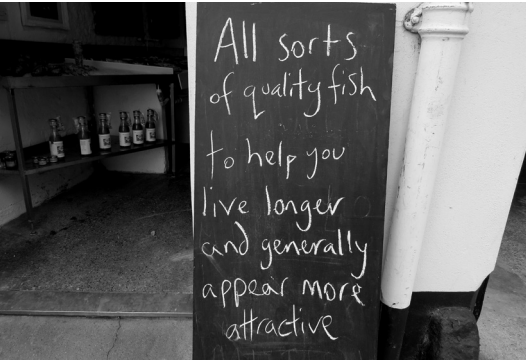 All sorts
of quality fish
to help you
live longer
and generally
appear more
attractive